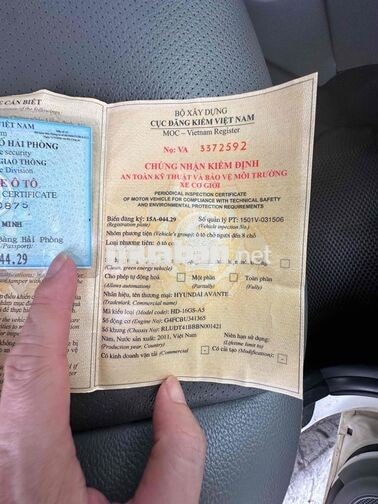 CẦN BIẾT
VIỆT NAM
Ố HẢI PHÒNG
e security
GIAO THÔNG
e Division
E Ô TÔ
CERTIFICATE
0875
MINH
Hải Phòng
Passport):
044.29
BỘ XÂY DỰNG
CỤC ĐĂNG KIỂM VIỆT NAM
MOC – Vietnam Register
No: VA 3372592
CHỨNG NHẬN KIỂM ĐỊNH
AN TOÀN KỸ THUẬT VÀ BẢO VỆ MÔI TRƯỜNG
XE CƠ GIỚI
PERIODICAL INSPECTION CERTIFICATE
OF MOTOR VEHICLE FOR COMPLIANCE WITH TECHNICAL SAFETY
AND ENVIRONMENTAL PROTECTION REQUIREMENTS
Biển đăng ký: 15A-044.29 Số quản lý PT: 1501V-031506
(Registration plate) (Vehicle inspection No.)
Nhóm phương tiện (Vehicle's group): ô tô chở người đến 8 chỗ
Loại phương tiện: ô tô con
(Clean, green energy vehicle)
Cho phép tự động hoá Một phần Toàn phần
(Allows automation) (Partially) (Fully)
Nhãn hiệu, tên thương mại: HYUNDAI AVANTE
(Trademark)
Mã kiểu loại (Model Code): HD-16GS-A5
Số động cơ (Engine No): G4FCBU341365
Số khung (Chassis No): RLUDT41BBBN001421
Năm, Nước sản xuất: 2011, Việt Nam Niên hạn sử dụng:
(Production year, Country) (Lifetime limit to)
Có kinh doanh vận tải (Commercial - Có cải tạo (Modification): -